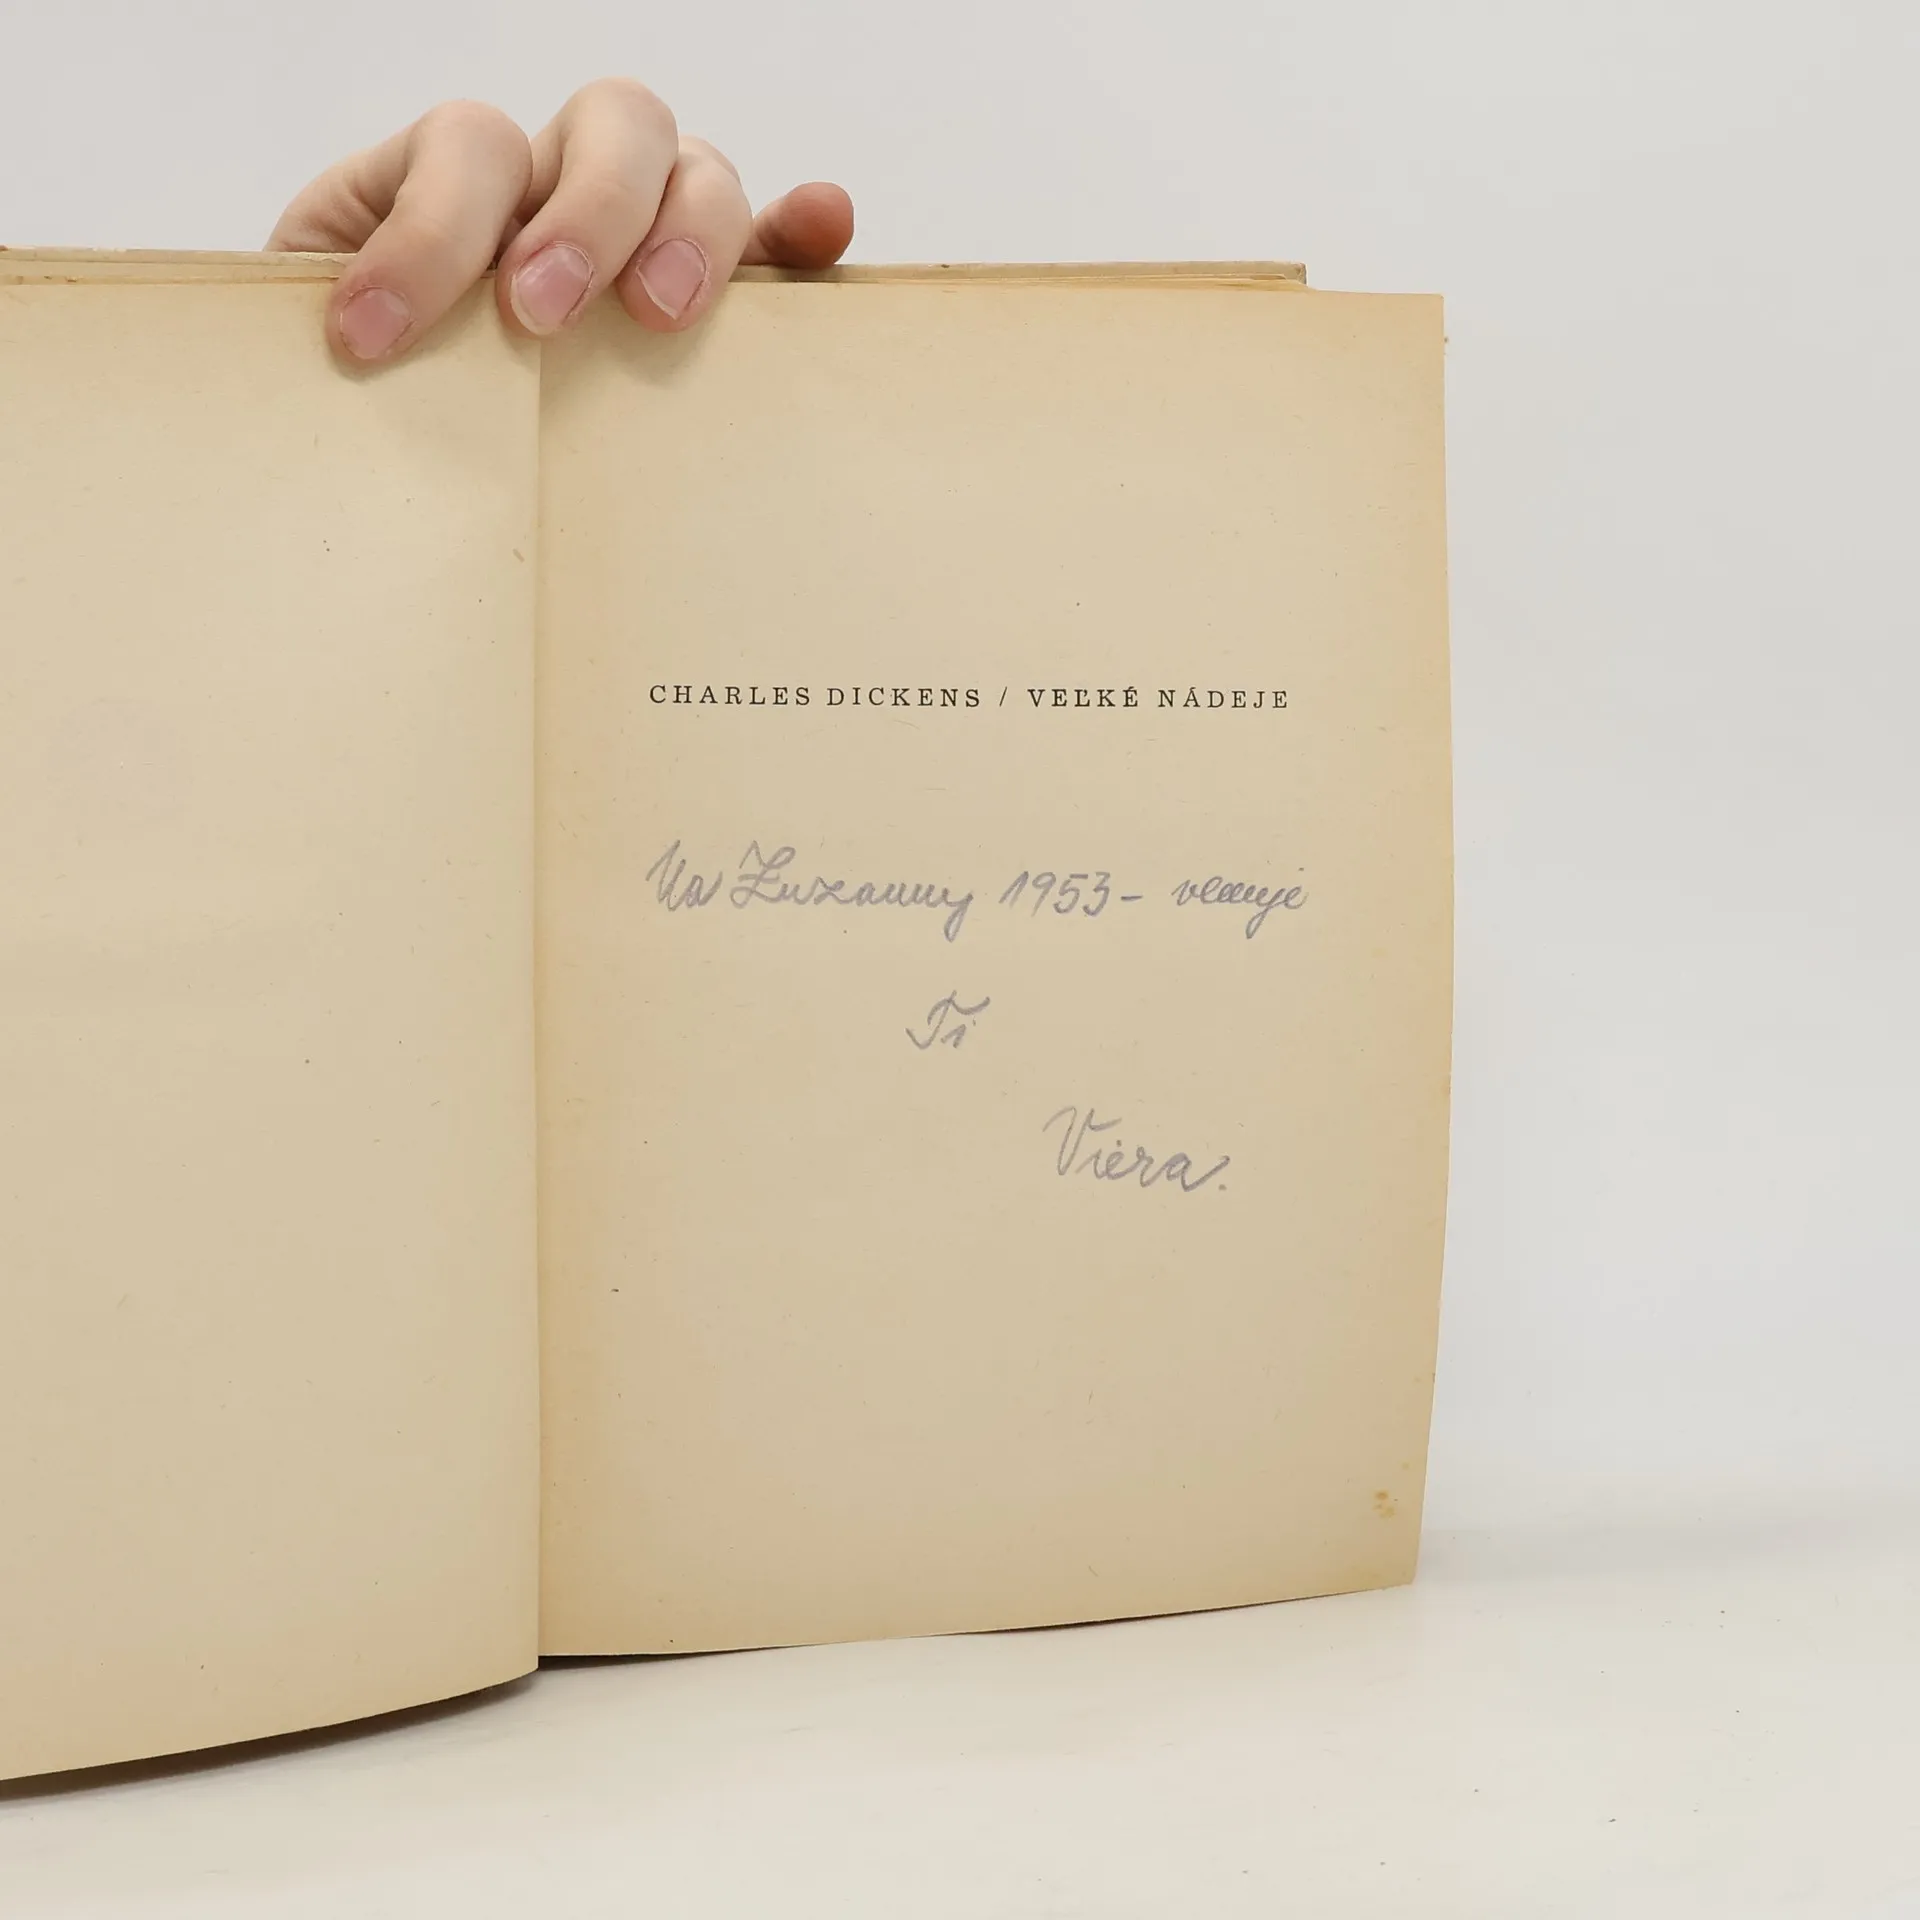 CHARLES DICKENS / VEĽKÉ NÁDEJE
Na Zuzanny 1953 – venuje
Ti
Viera.